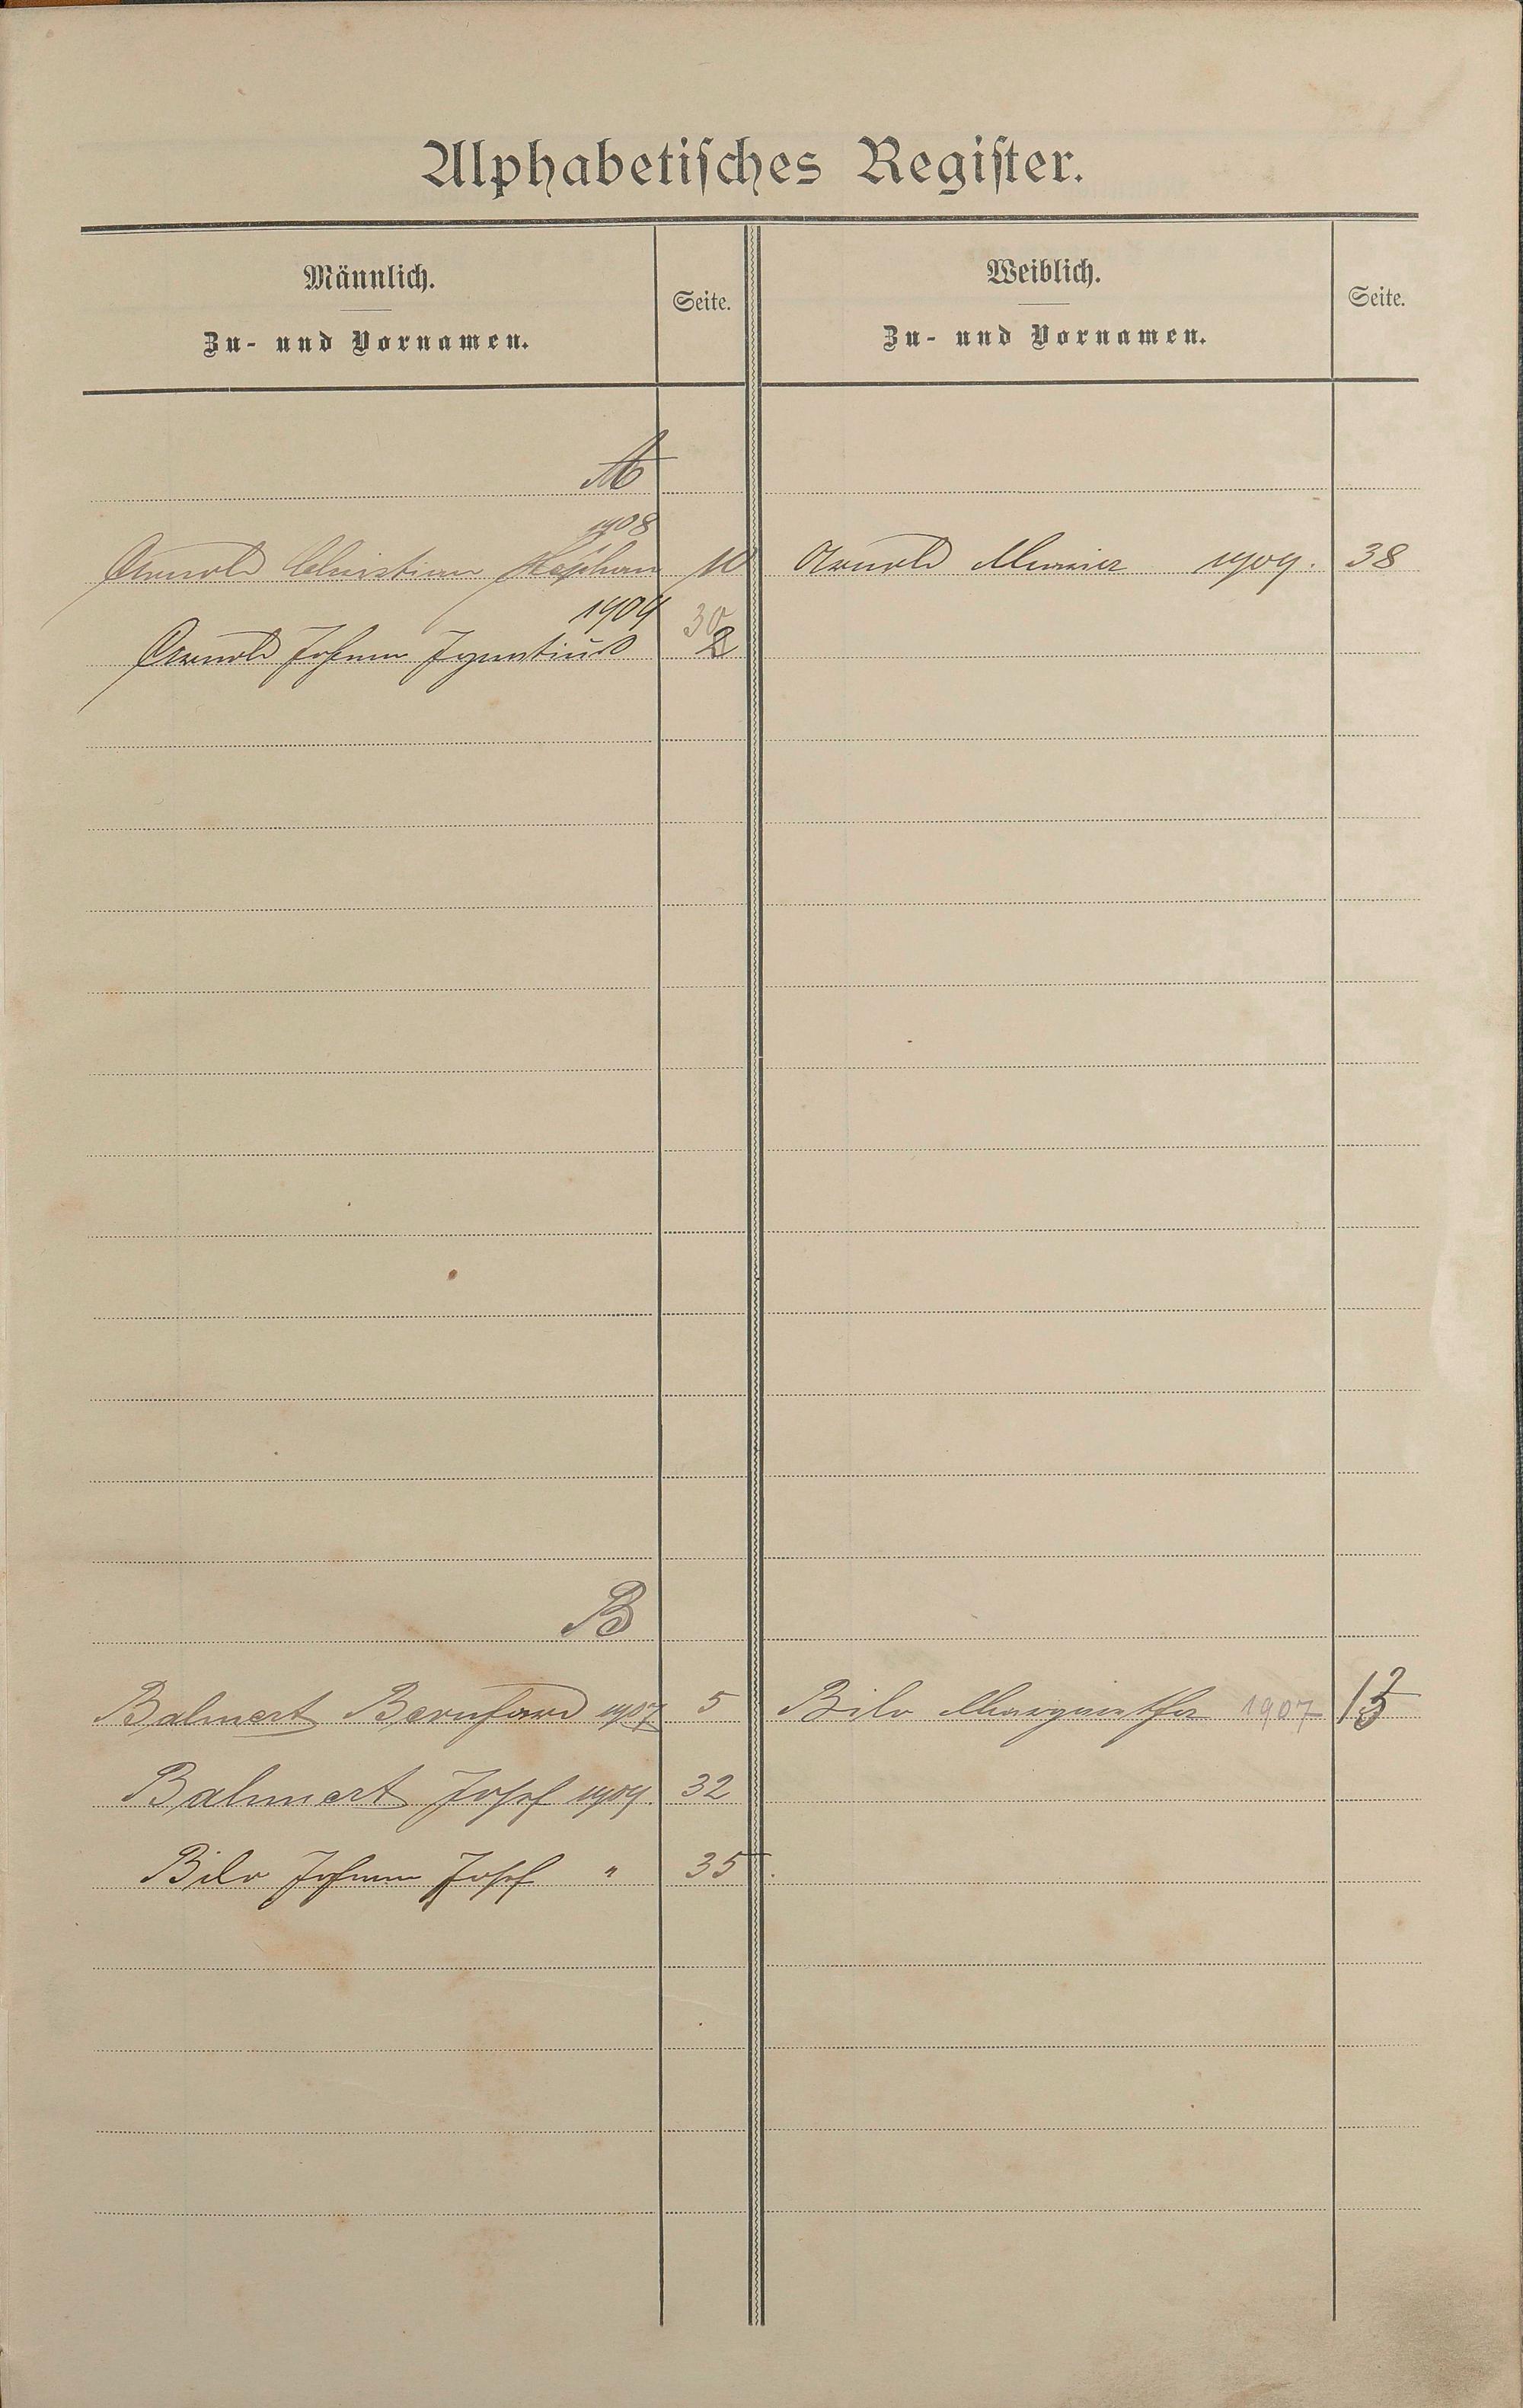 Alphabetiſches Regiſter.
Männlich.
Zu- und Vornamen.
Seite.
Weiblich.
Zu- und Vornamen.
Seite.
A
1908
Arnold Christian Stephan 10 Arnold Maria 1909. 38
1909
Arnold Johann Ignatius 30
B
Balmert Bernhard 1907 5 Bilo Margaretha 1907
Balmert Josef 1909. 32
Bilo Johann Josef " 35